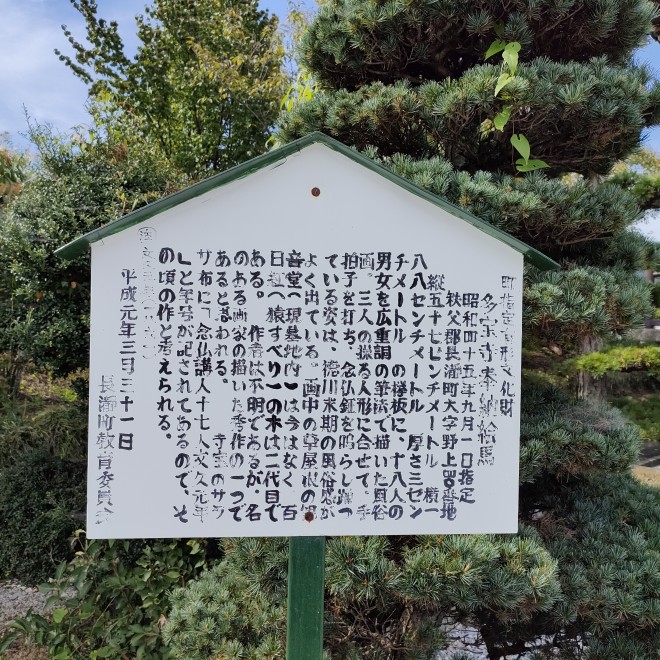 町指定有形文化財
多宝寺奉納絵馬
昭和四十五年九月一日指定
秩父郡長瀞町大字野上
縦五十七センチメートル 横一
八八センチメートル 厚さ三セン
チメートルの欅板に、十八人の
男女を広重調の筆法で描いた風俗
画。三人の操る人形に合せて、手
拍子を打ち、念仏鉦を鳴らし踊っ
ている姿は、徳川末期の風俗感が
よく出ている。画中の草屋根の
音堂(現墓地内)は今はなく、百
日紅(猿すべり)の木は二代目で
ある。作者は不明であるが、名
のある画家の描いた秀作の一つで
あると思われる。寺宝のサラ
サ布に「念仏講人十七人文久元年
」と年号が記されてあるので、そ
の頃の作と考えられる。
平成元年三月三十一日
長瀞町教育委員会